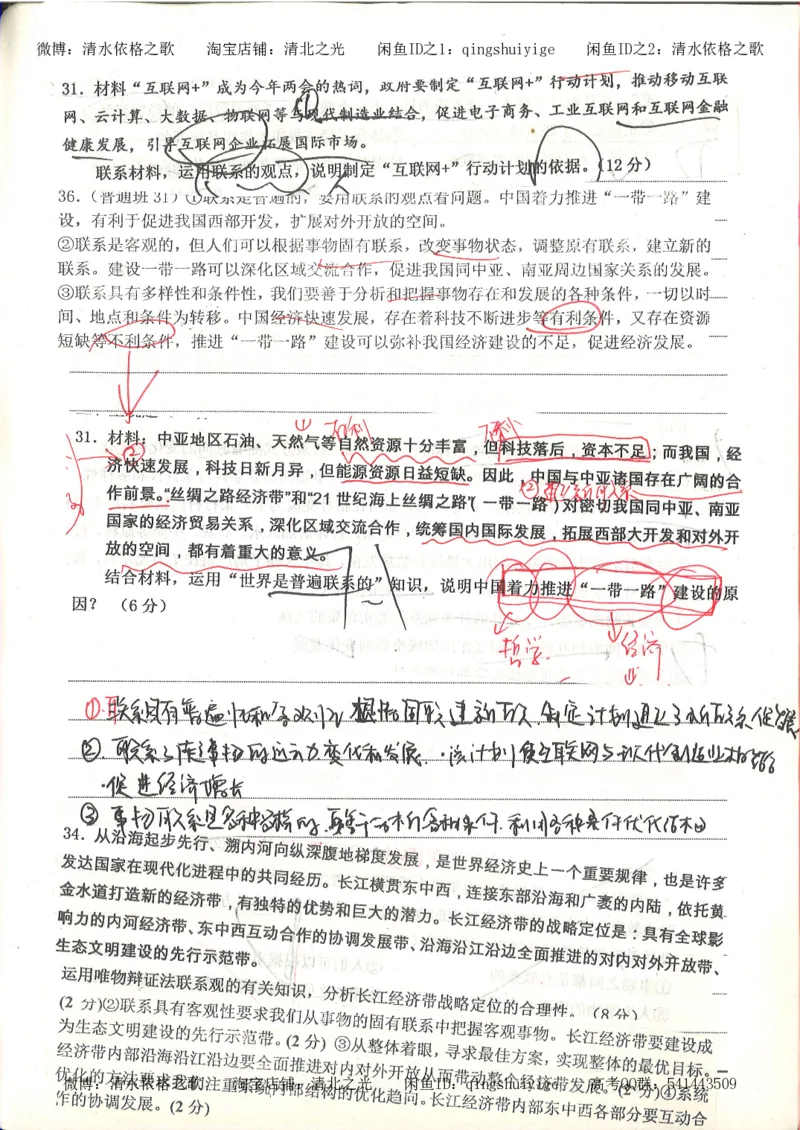 微博：清水依格之歌 淘宝店铺：清北之光 闲鱼ID之1：qingshuiyige 闲鱼ID之2：清水依格之歌
31．材料“互联网+”成为今年两会的热词，政府要制定“互联网+”行动计划，推动移动互联
网、云计算、大数据、物联网等与现代制造业结合，促进电子商务、工业互联网和互联网金融
健康发展，引导互联网企业拓展国际市场。
联系材料，运用联系的观点，说明制定“互联网+”行动计划的依据。（12分）
36．（普通班31）①联系是普遍的，要用联系的观点看问题。中国着力推进“一带一路”建
设，有利于促进我国西部开发，扩展对外开放的空间。
②联系是客观的，但人们可以根据事物固有联系，改变事物状态，调整原有联系，建立新的
联系。建设一带一路可以深化区域交流合作，促进我国同中亚、南亚周边国家关系的发展。
③联系具有多样性和条件性，我们要善于分析和把握事物存在和发展的各种条件，一切以时
间、地点和条件为转移。中国经济快速发展，存在着科技不断进步等有利条件，又存在资源
短缺等不利条件，推进“一带一路”建设可以弥补我国经济建设的不足，促进经济发展。
① 有利 不利
31．材料：中亚地区石油、天然气等自然资源十分丰富，但科技落后，资本不足；而我国，经
(2)
济快速发展，科技日新月异，但能源资源日益短缺。因此，中国与中亚诸国存在广阔的合
作前景。“丝绸之路经济带”和“21世纪海上丝绸之路”（一带一路）对密切我国同中亚、南亚
国家的经济贸易关系，深化区域交流合作，统筹国内国际发展，拓展西部大开发和对外开
放的空间，都有着重大的意义。
结合材料，运用“世界是普遍联系的”知识，说明中国着力推进“一带一路”建设的原
因？（6分）
哲学 经济
①联系具有普遍性和客观性 根据固有联系建立新联系 制定计划
②联系 事物的运动变化和发展 该计划使互联网与现代制造业相结合
促进经济增长
③事物联系是多种多样的
34．从沿海起步先行、溯内河向纵深腹地梯度发展，是世界经济史上一个重要规律，也是许多
发达国家在现代化进程中的共同经历。长江横贯东中西，连接东部沿海和广袤的内陆，依托黄
金水道打造新的经济带，有独特的优势和巨大的潜力。长江经济带的战略定位是：具有全球影
响力的内河经济带、东中西互动合作的协调发展带、沿海沿江沿边全面推进的对内对外开放带、
生态文明建设的先行示范带。
运用唯物辩证法联系观的有关知识，分析长江经济带战略定位的合理性。（8分）
(2 分)②联系具有客观性要求我们从事物的固有联系中把握客观事物。长江经济带要建设成
为生态文明建设的先行示范带。(2 分) ③从整体着眼，寻求最佳方案，实现整体的最优目标。
经济带内部沿海沿江沿边要全面推进对内对外开放从而带动整个经济带发展。(2 分)④系统
优化的方法要求我们注重系统内部结构的优化趋向。长江经济带内部东中西各部分要互动合
微博：清水依格之歌 淘宝店铺：清北之光 闲鱼ID：qingshuiyige 高考QQ群：541443509
作的协调发展。(2 分)